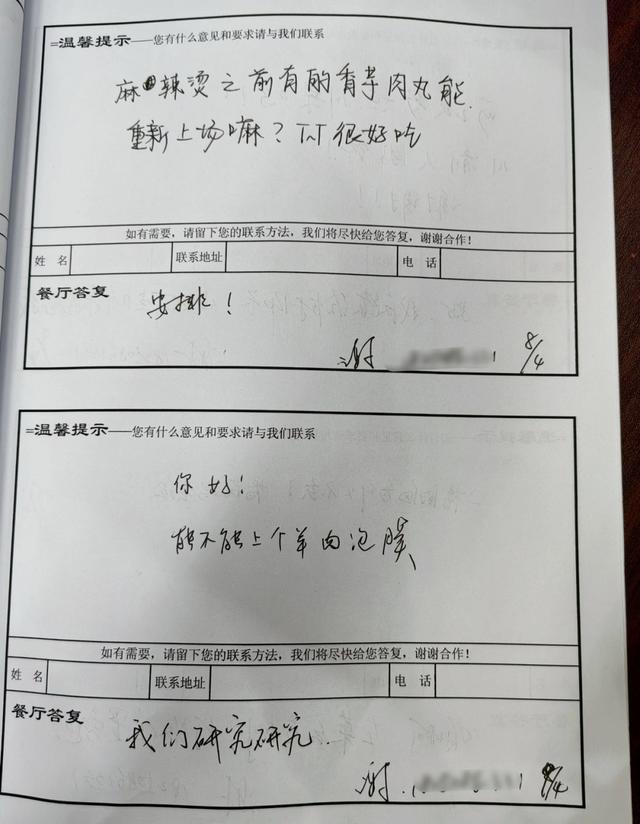 =温馨提示——您有什么意见和要求请与我们联系
麻辣烫之前有的香芋肉丸能
重新上场嘛？TVT很好吃
如有需要，请留下您的联系方法，我们将尽快给您答复，谢谢合作！
姓名 联系地址 电话
餐厅答复
安排！
谢 8/4
=温馨提示——您有什么意见和要求请与我们联系
你好！
能不能上个羊肉泡膜
如有需要，请留下您的联系方法，我们将尽快给您答复，谢谢合作！
姓名 联系地址 电话
餐厅答复
我们研究研究.
谢 8/4